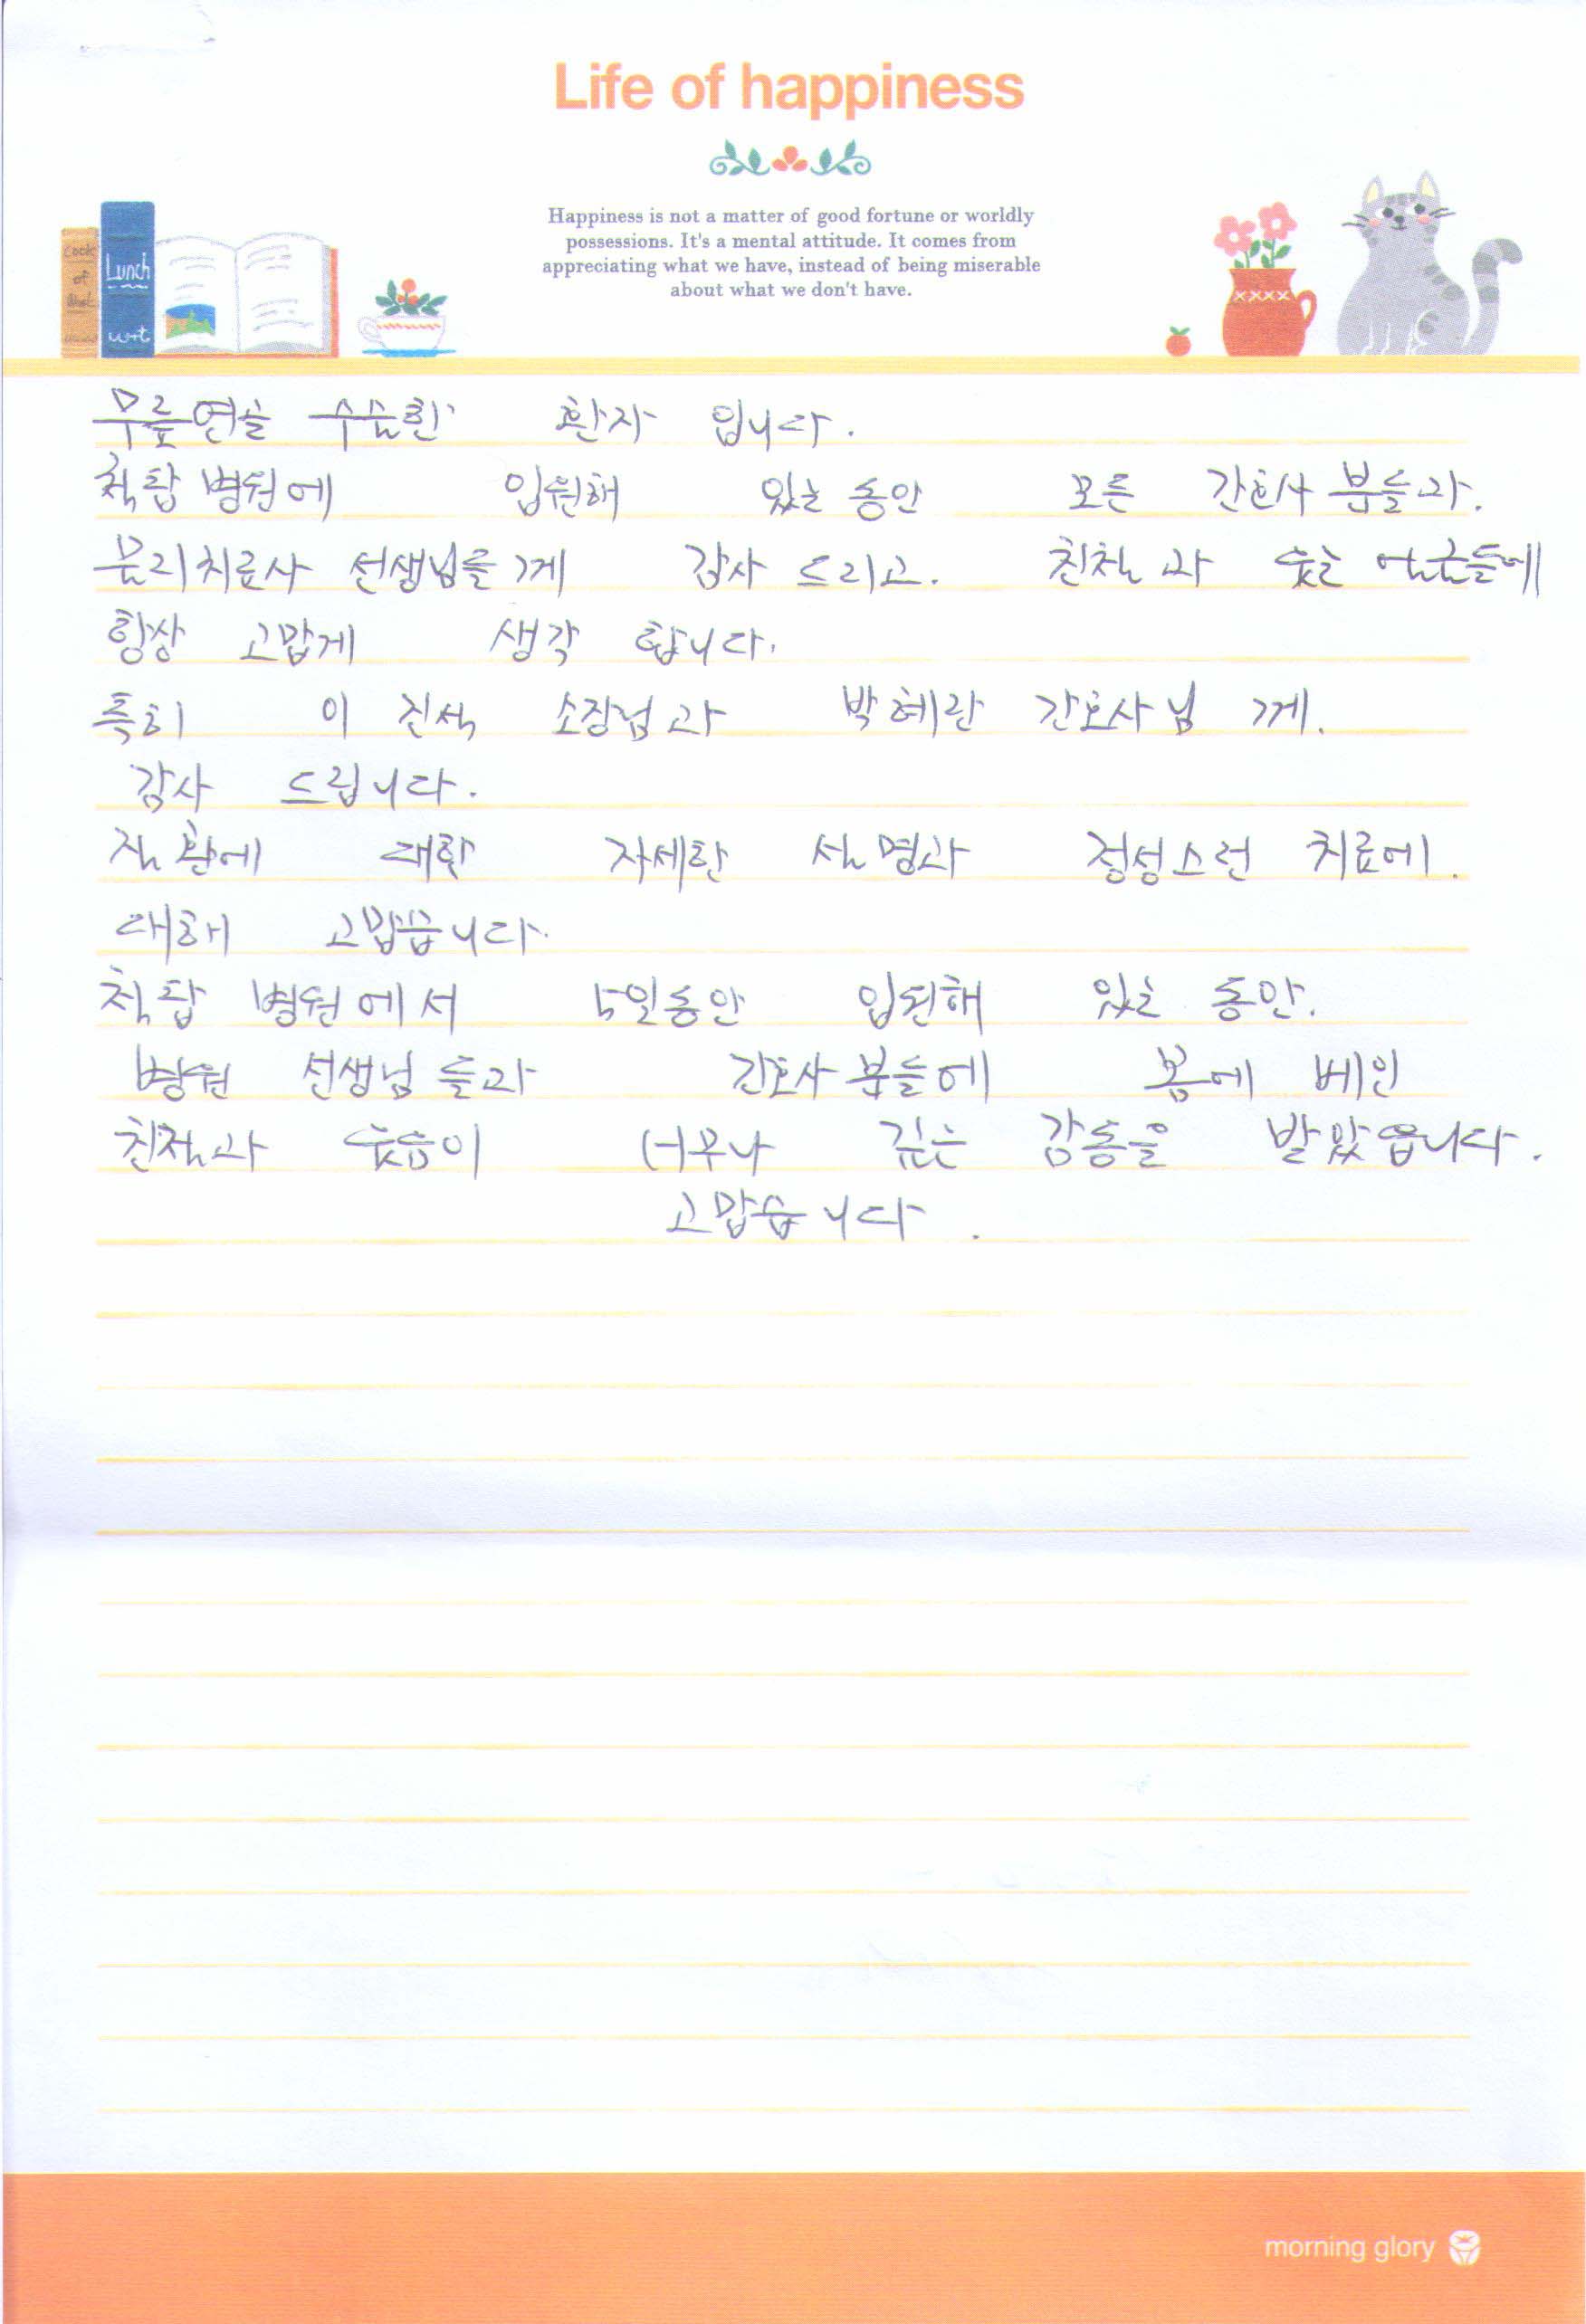 Life of happiness
Happiness is not a matter of good fortune or worldly
possessions. It's a mental attitude. It comes from
appreciating what we have, instead of being miserable
about what we don't have.
Lunch
무릎연골 수술한 환자 입니다.
척탑병원에 입원해 있는 동안 모른 간호사 분들과.
물리치료사 선생님들게 감사 드리고. 친절과 웃는 얼굴들에
항상 고맙게 생각 합니다.
특히 이 진석 소장님과 박혜란 간호사님 께.
감사 드립니다.
질환에 대한 자세한 설명과 정성스런 치료에.
대해 고맙습니다.
척탑 병원에서 5일동안 입원해 있는 동안.
병원 선생님 들과 간호사분들에 몸에 베인
친절과 웃음이 너무나 깊은 감동을 받았읍니다.
고맙습니다.
morning glory